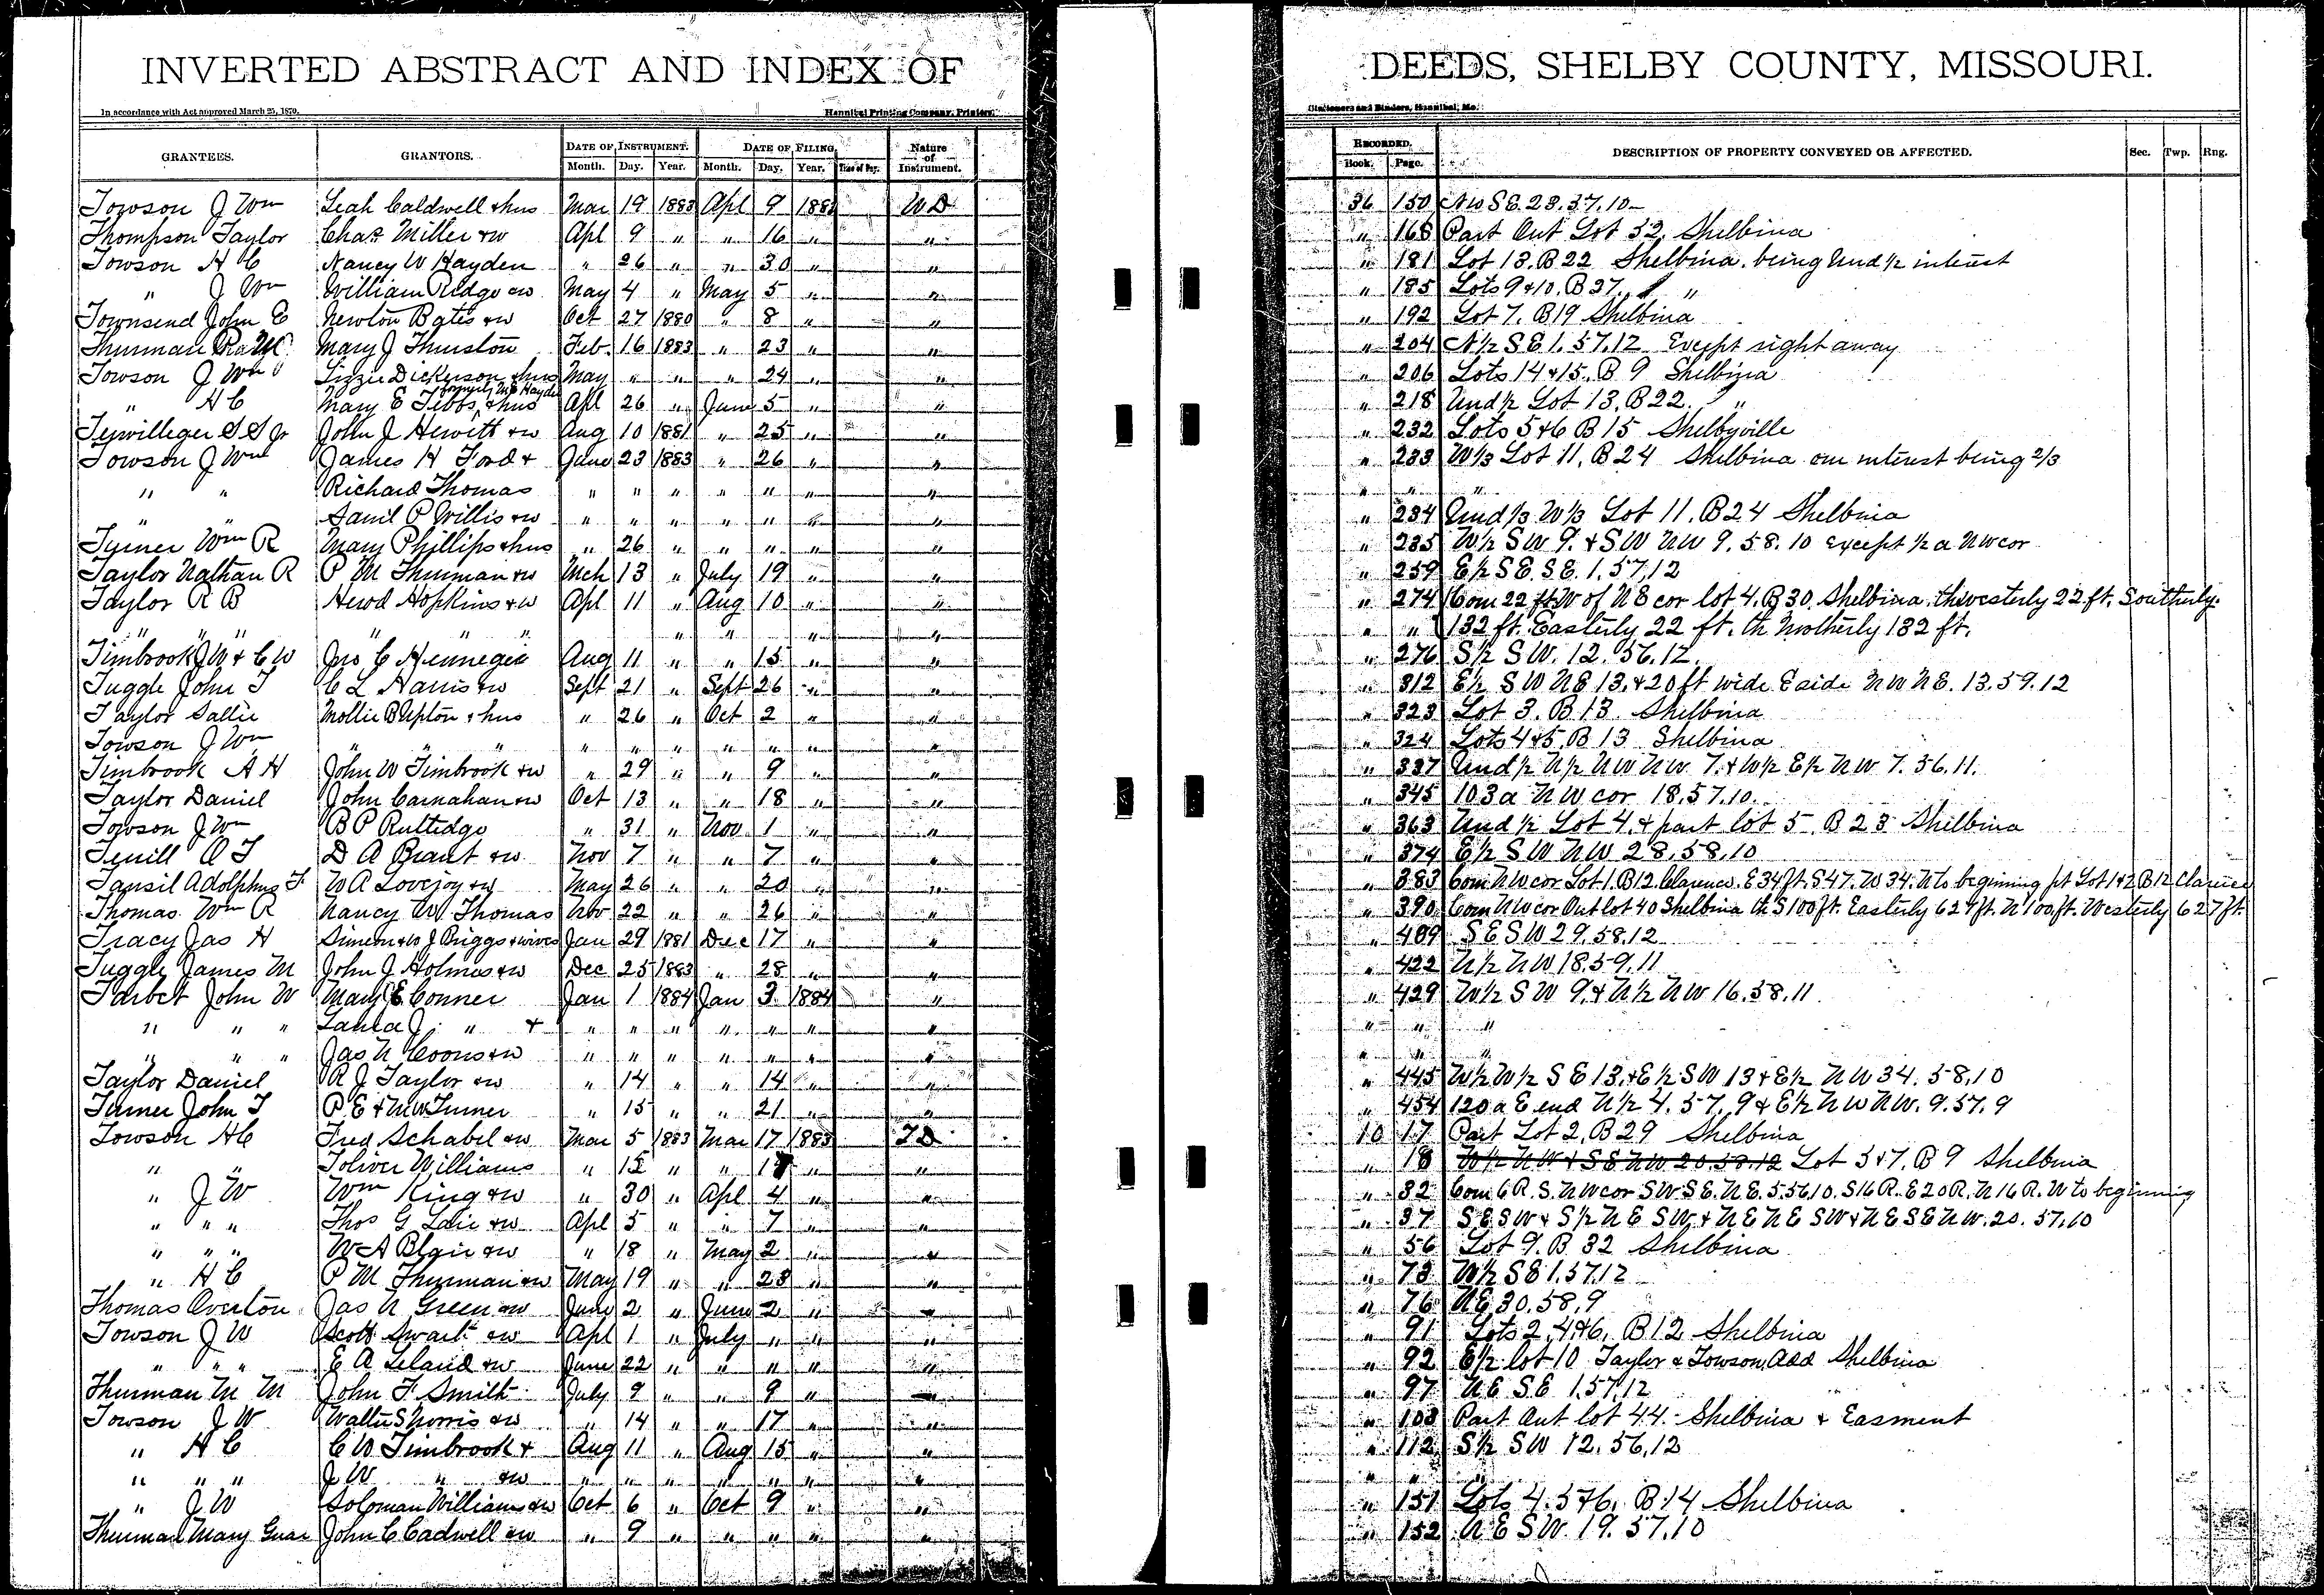 INVERTED ABSTRACT AND INDEX OF DEEDS, SHELBY COUNTY, MISSOURI.
In accordance with Act approved March 25, 1870. Hannibal Printing Company, Printers, Stationers and Binders, Hannibal, Mo.
GRANTEES. GRANTORS. DATE OF INSTRUMENT. DATE OF FILING. Nature of Instrument. RECORDED. DESCRIPTION OF PROPERTY CONVEYED OR AFFECTED. Sec. Twp. Rng.
Month. Day. Year. Month. Day. Year. Time of Day. Book. Page.
Towson J Wm Leah Caldwell & hus Mar 19 1883 Apl 9 1883 WD 36 150 NW SE. 28. 57. 10
Thompson Taylor Chas Miller & w Apl 9 " " 16 " " " 168 Part Out Lot 32. Shelbina
Towson H C Nancy W Hayden " 26 " " 30 " " " 181 Lot 13. B 22 Shelbina. being Und 1/2 interest
" J Wm William Ridge & w May 4 " May 5 " " " 185 Lots 9 & 10. B 27. " "
Townsend John E Newton Bates & w Oct 27 1880 " 8 " " " 192 Lot 7. B 19 Shelbina
Thurman Mary J Thurston Feb. 16 1883 " 23 " " " 204 N 1/2 SE 1. 57. 12 Except right away
Towson J Wm Lizzie Dickerson & hus May " " " 24 " " " 206 Lots 14 & 15. B 9 Shelbina
" H C Mary E Tibbs & hus formerly Hayden Apl 26 " June 5 " " " 218 Und 1/2 Lot 13. B 22. "
Terwilleger S S Jr John J Hewitt & w Aug 10 1881 " 25 " " " 232 Lots 5 & 6 B 15 Shelbyville
Towson J Wm James H Ford & June 23 1883 " 26 " " " 233 W 1/3 Lot 11. B 24 Shelbina our interest being 2/3
" " Richard Thomas " " " " " " " " " "
" " Saml P Willis & w " " " " " " " " 234 Und 1/3 W 1/3 Lot 11. B 24 Shelbina
Turner Wm R Mary Phillips & hus " 26 " " " " " " 235 W 1/2 SW 9. & SW NW 9. 58. 10 Except 1/2 a NW cor
Taylor Nathan R P M Thurman & w Mch 13 " July 19 " " " 259 E 1/2 SE. SE. 1. 57. 12
Taylor R B Herod Hopkins & w Apl 11 " Aug 10 " " " 274 Com 22 ft W of NE cor lot 4. B 30. Shelbina. th westerly 22 ft. Southerly
" " " " " " " " " " " " 132 ft. Easterly 22 ft. th Northerly 132 ft.
Timbrook J W & C W Jno C Hennegie Aug 11 " " 15 " " " 276 S 1/2 SW. 12. 56. 12.
Tuggle John T C L Harris & w Sept 21 " Sept 26 " " " 312 E 1/2 SW NE 13. & 20 ft wide E side NW NE. 13. 59. 12
Taylor Sallie Mollie B Upton & hus " 26 " Oct 2 " " " 323 Lot 3. B 13. Shelbina
Towson J Wm " " " " " " " " " " " 324 Lots 4 & 5. B 13 Shelbina
Timbrook A H John W Timbrook & w " 29 " " 9 " " " 337 Und 1/2 N 1/2 NW NW 7. & W 1/2 E 1/2 NW 7. 56. 11.
Taylor Daniel John Carnahan & w Oct 13 " " 18 " " " 345 103 a NW cor 18. 57. 10.
Towson J Wm B P Rutledge " 31 " Nov 1 " " " 363 Und 1/2 Lot 4. & part lot 5. B 23 Shelbina
Terrill A T D A Brant & w Nov 7 " " 7 " " " 374 E 1/2 SW NW 28. 58. 10
Tansil Adolphus F W A Lovejoy & w May 26 " " 20 " " " 383 Com NW cor Lot 1. B 12. Clarence. E 34 ft. S 47. W 34. N to beginning pt Lot 1 & 2 B 12 Clarence
Thomas Wm R Nancy W. Thomas Nov 22 " " 26 " " " 390 Com NW cor Out lot 40 Shelbina th S 100 ft. Easterly 627 ft. N 100 ft. Westerly 627 ft.
Tracy Jas H Simeon & W J Briggs & wives Jan 29 1881 Dec 17 " " " 409 SE SW 29. 58. 12
Tuggle James M John J Holmes & w Dec 25 1883 " 28 " " " 422 N 1/2 NW 18. 59. 11
Tarbet John W Mary E Conner Jan 1 1884 Jan 3 1884 " " 429 W 1/2 SW 9. & N 1/2 NW 16. 58. 11
" " " Laura J. " & " " " " " " " " " "
" " " Jas N Coons & w " " " " " " " " " "
Taylor Daniel R J Taylor & w " 14 " " 14 " " " 445 W 1/2 W 1/2 SE 13. & E 1/2 SW 13 & E 1/2 NW 34. 58. 10
Turner John T P E & M W Turner " 15 " " 21 " " " 454 120 a E end N 1/2 4. 57. 9 & E 1/2 NW NW. 9. 57. 9
Towson H C Fred Schabel & w Mar 5 1883 Mar 17 1883 TD 10 17 Part Lot 2. B 29 Shelbina
" " Toliver Williams " " " " " " 18 W 1/2 NW & SE NW 20. 58. 12 Lot 3 & 7. B 9 Shelbina
" J W Wm King & w " 30 " Apl 4 " " " 32 Com 6 R. S. NW cor SW. SE. NE. 5. 56 10. S 16 R. E 20 R. N 16 R. W to beginning
" " " Thos G Lair & w Apl 5 " " 7 " " " 37 SE SW & S 1/2 NE SW. & NE NE SW & NE SE NW. 20. 57. 10
" " " W A Blair & w " 18 " May 2 " " " 56 Lot 9. B 32 Shelbina
" H C P M Thurman & w May 19 " " 23 " " " 73 W 1/2 SE 1. 57. 12
Thomas Overton Jas N Green & w June 2 " June 2 " " " 76 NE 30. 58. 9
Towson J W Scott Swart & w Apl 1 " July " " " " 91 Lots 2. 4 & 6. B 12 Shelbina
" " " E A Leland & w June 22 " " " " " " 92 E 1/2 lot 10 Taylor & Towson Add Shelbina
Thurman M M John F Smith July 9 " " 9 " " " 97 NE SE 1. 57. 12
Towson J W Walter S Norris & w " 14 " " 17 " " " 103 Part Out lot 44. Shelbina & Easment
" H C C W Timbrook & Aug 11 " Aug 15 " " " 112 S 1/2 SW 12. 56. 12
" " " J W " & w " " " " " " " " " "
" J W Soloman Williams & w Oct 6 " Oct 9 " " " 151 Lots 4. 5 & 6. B 14 Shelbina
Thurman Mary Guar John C Cadwell & w " 9 " " " " " " 152 NE SW. 19. 57. 10